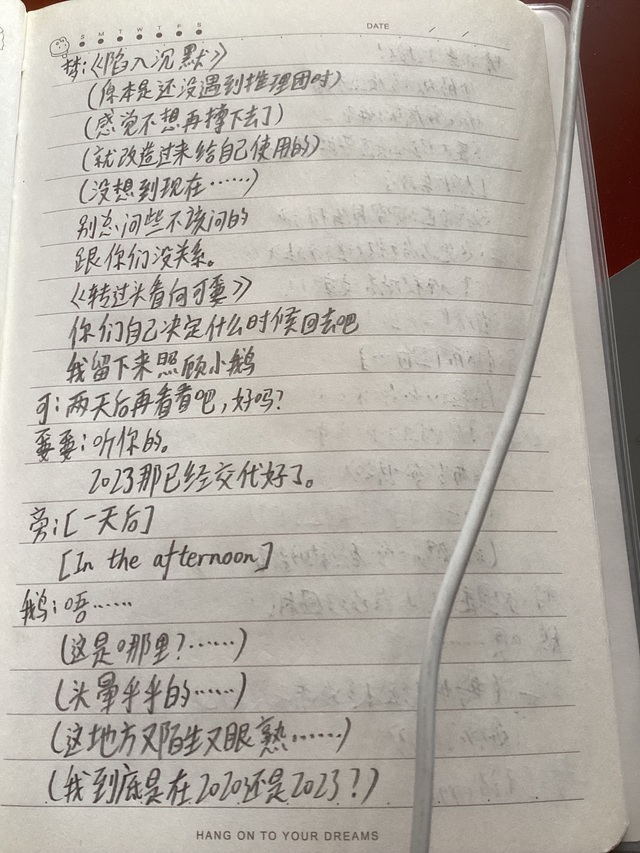 S M T W T F S
DATE / /
梦:《陷入沉默》
(原本是还没遇到推理团时)
(感觉不想再撑下去了)
(就改造过来给自己使用的)
(没想到现在……)
别总问些不该问的
跟你们没关系。
《转过头看向可蔓》
你们自己决定什么时候回去吧
我留下来照顾小鹅
可:两天后再看看吧,好吗?
蔓蔓:听你的。
2023那已经交代好了。
旁:[一天后]
[In the afternoon]
鹅:唔……
(这是哪里?……)
(头晕乎乎的……)
(这地方又陌生又眼熟……)
(我到底是在2020还是2023?)
HANG ON TO YOUR DREAMS